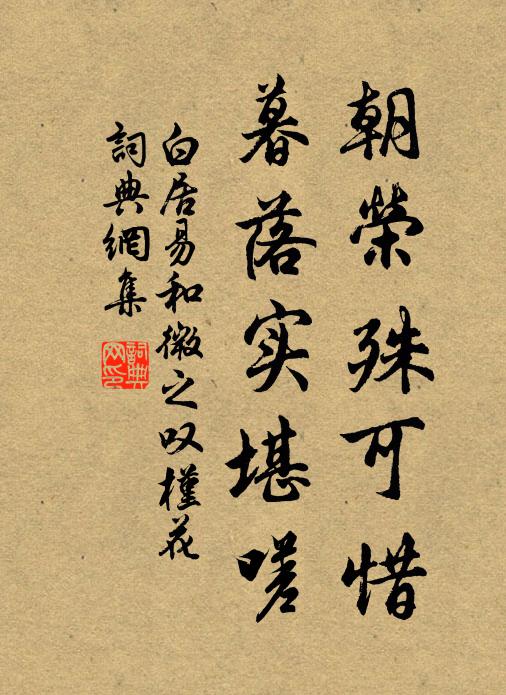 朝榮殊可惜
暮落实堪嗟
白居易和微之叹槿花
詞典網集
詞典网印